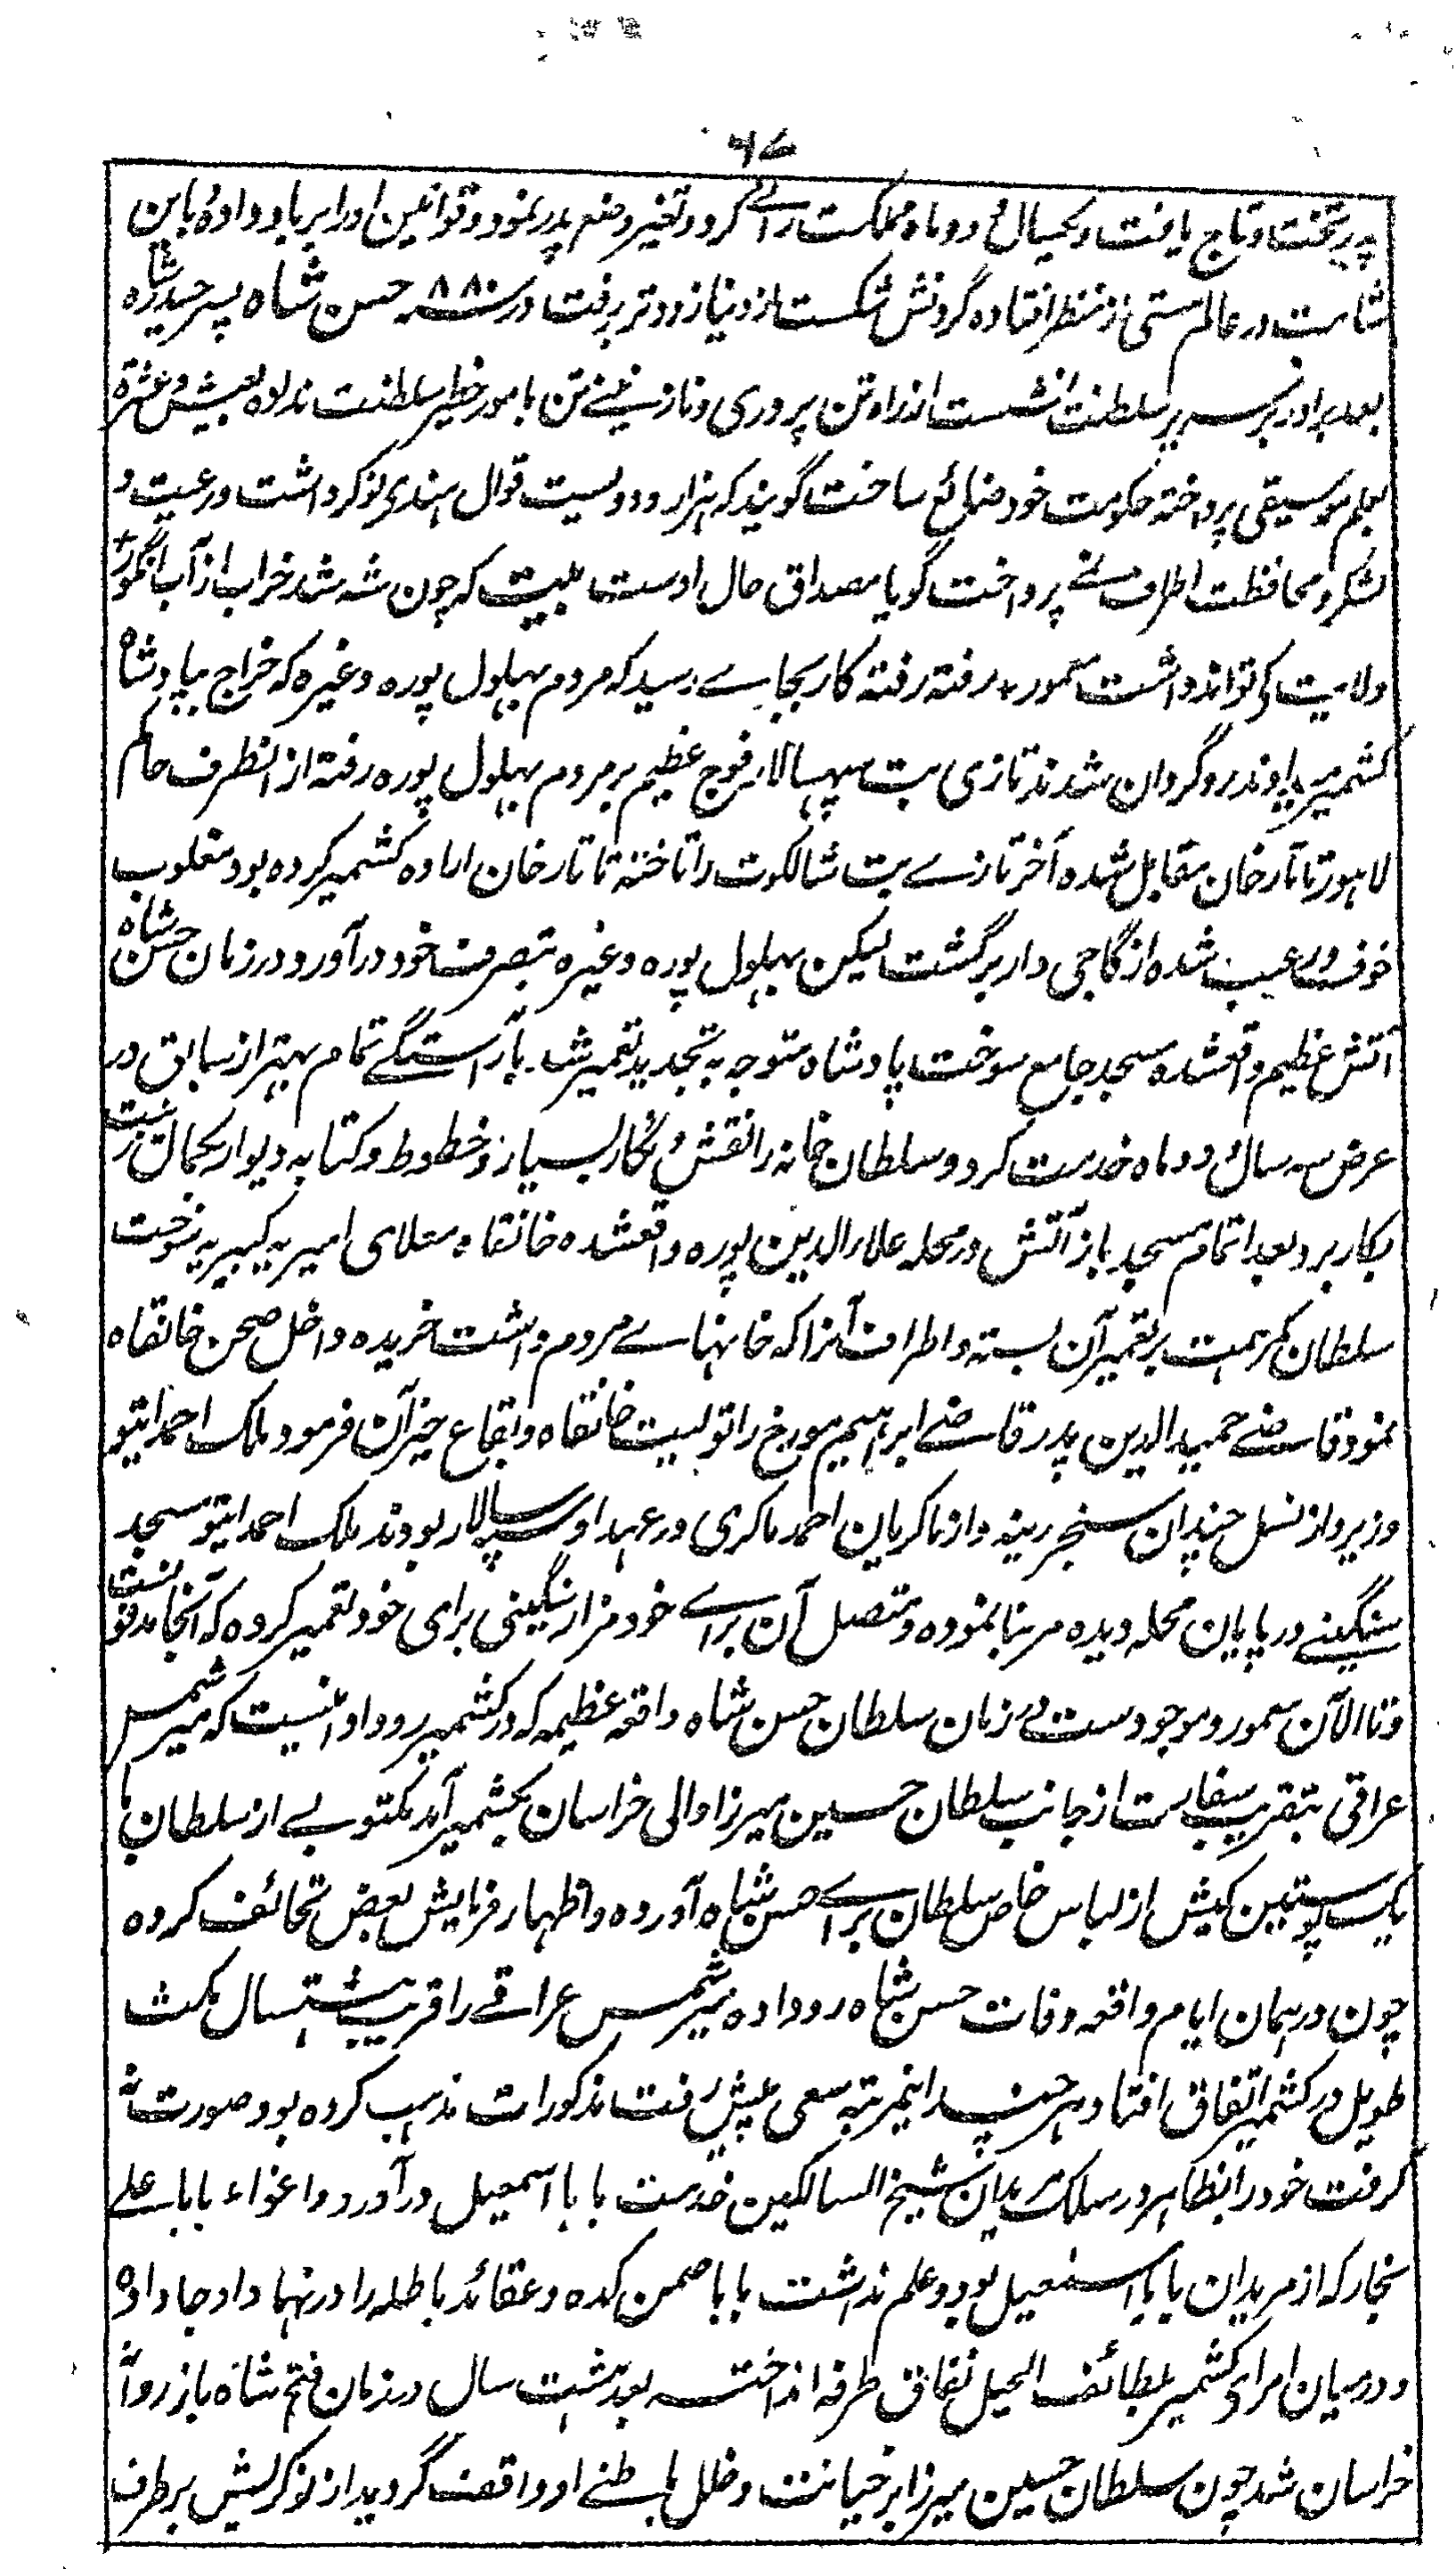 ۶۷
پدر تخت و تاج یافت و یکسال و دو ماه مملکت رانے کرد و تغیر وضع پدر نمود و قوانین او را برباد داده باین
شامت در عالم مستی از منظر افتاده گردنش شکست از دنیا زودتر برفت در سنه ۸۸۰ حسن شاه پسر حیدر شاه
بعد پدر بر سریر سلطنت نشست انداه تن پروری و نازنینے تن بامور خطیر سلطنت نداده بعیش و عشرة
بعلم موسیقی پرداخته حکومت خود ضائع ساخت گویند که هزار و دو لیست قوال هندی نوکر داشت و رعیت و
لشکر و محافظت اطراف نمے پرداخت گویا مصداق حال اوست بیت که چون شه شد خراب از آب انگور +
ولایت کی تواند داشت معمور + رفته رفته کار بجاے رسید که مردم بهلول پوره وغیره که خراج بپادشاه
کشمیر میدادند روگردان شدند تازی بت سپهسالار فوج عظیم بر مردم بهلول پوره رفته از انطرف حاکم
لاهور تاتار خان مقابل شده آخر تازے بت شالکوت را تاخته تا تاتار خان اراده کشمیر کرده بود مغلوب
خوف و رعب شده از گاجی دار برگشت لیکن بهلول پوره وغیره بتصرف خود درآورد و در زمان حسن شاه
آتش عظیم واقعشده مسجد جامع سوخت پادشاه متوجه به تجدید تعمیرش بآراستگے تمام بهتر از سابق در
عرض سه سال و دو ماه خدمت کرد و سلطان خانه را نقش و نگار بسیار و خطوط و کتابه دیوار بکمال زینت
بکار برد بعد اتمام مسجد باز آتش در محله علاء الدین پوره واقعشده خانقاه معلای امیریه کبیریه سوخت
سلطان کمر همت بر تعمیر آن بسته و اطراف آنرا که خانهاے مردم داشت خریده داخل صحن خانقاه
نمود قاضے حمید الدین پدر قاضے ابراهیم مورخ را تولیت خانقاه و بقاع خیر آن فرمود ملک احمد ایتو
وزیر و از نسل چندان سنجر رینه و از ماکریان احمد ماکری در عهد او سپسالار بودند ملک احمد ایتو مسجد
سنگینے در پایان محله دیده مر بنا نموده و متصل آن براے خود مزار سنگینی برای خود تعمیر کرده که آنجا مدفونست
و تا الآن معمور و موجود ست و در زمان سلطان حسن شاه واقعه عظیمه که در کشمیر رو داد اینست که میر شمس
عراقی بتقریب سفارت از جانب سلطان حسین میرزا والی خراسان بکشمیر آمد مکتوبے از سلطان با
یک پوستین کیش از لباس خاص سلطان براے حسن شاه آورده و اظهار فرمایش بعض تحائف کرده
چون در همان ایام واقعه وفات حسن شاه روداده میر شمس عراقے را قریب هشت سال مکث
طویل در کشمیر اتفاق افتاد هر چند اینمرتبه سعی پیش رفت مذکورات مذهب کرده بود صورت نه
گرفت خود را بظاهر در سلک مریدان شیخ السالکین خدمت بابا اسمعیل درآورد و اغواء بابا علے
نجار که از مریدان بابا اسمعیل بود و علم نداشت بابا صمن کده و عقائد باطله را در نهاد او جا داده
و در میان امرای کشمیر بلطائف الحیل نفاق طرفه انداخت بعد هشت سال در زمان فتح شاه باز روانه
خراسان شد چون سلطان حسین میرزا بر خیانت و خلل باطنے او واقف گردید از نوکریش برطرف